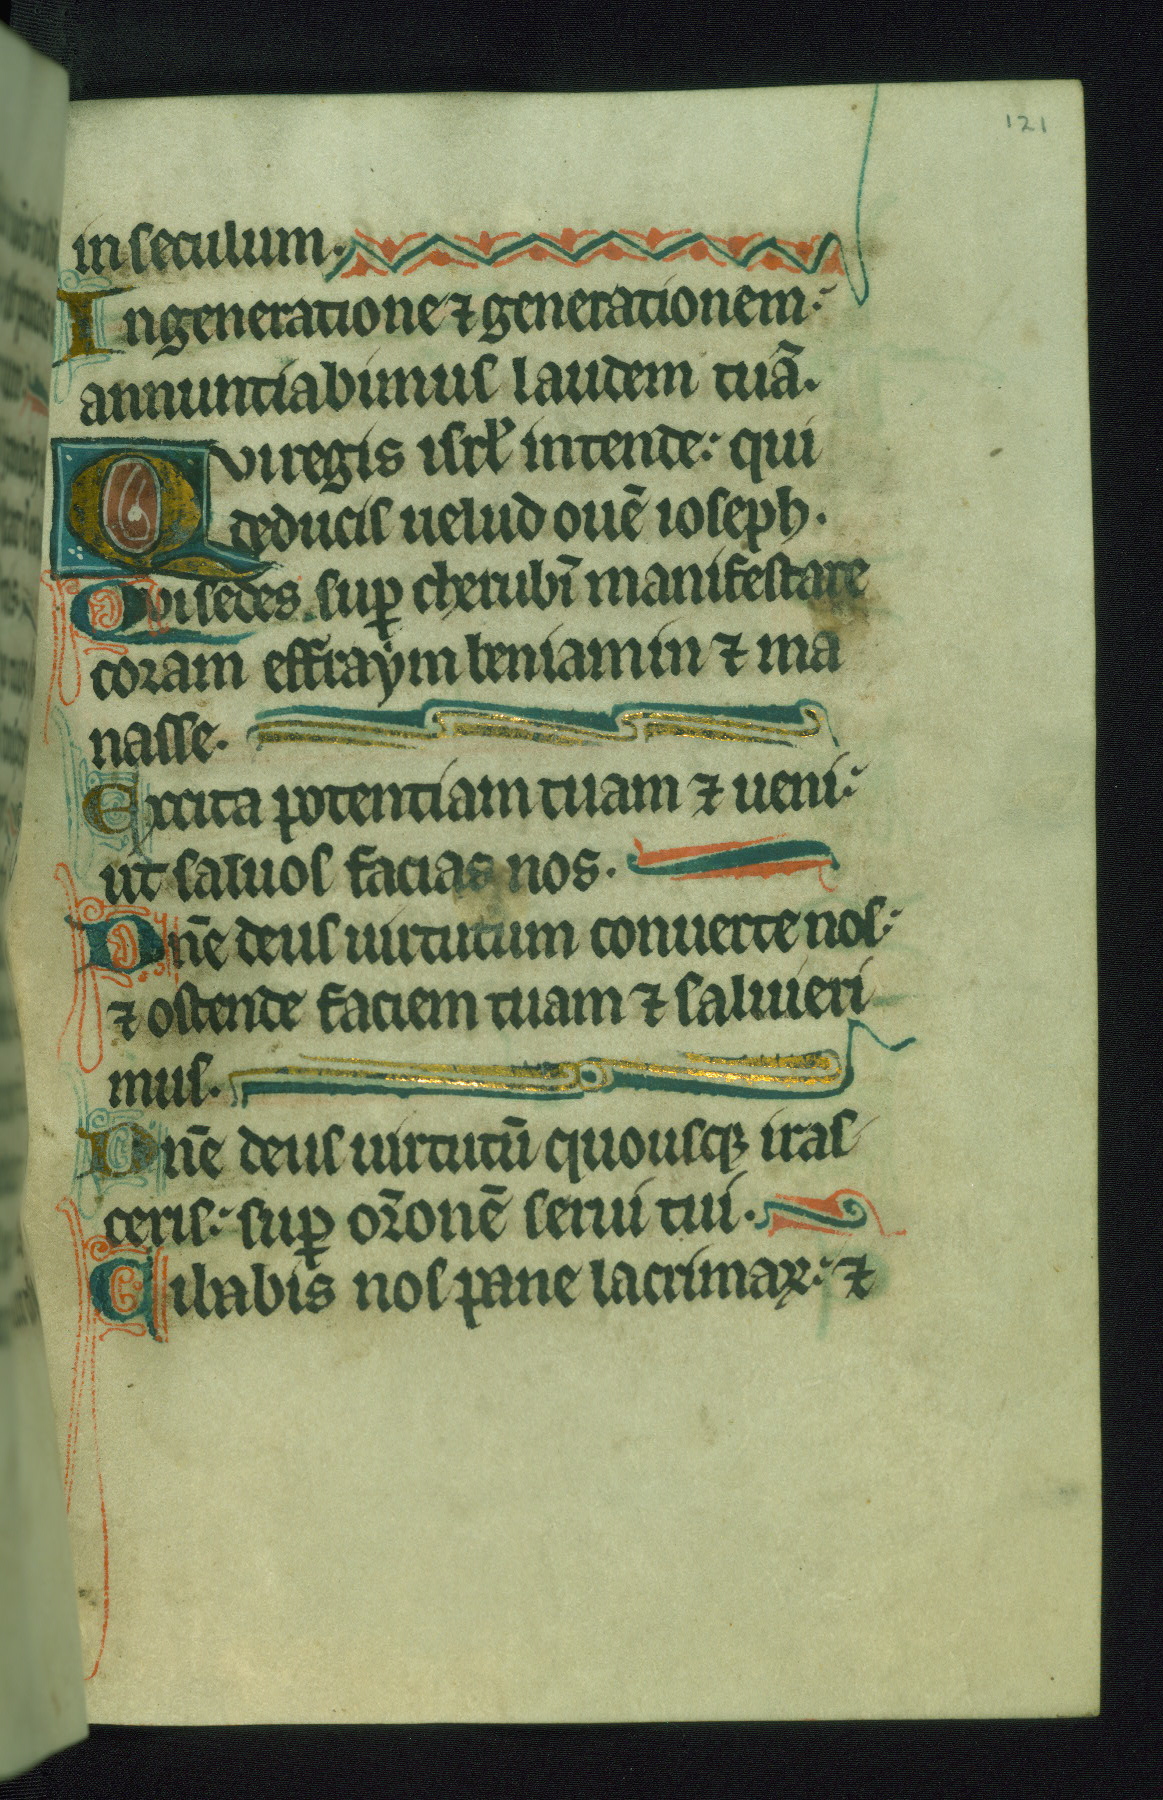 121
in seculum.
In generatione ⁊ generationem:
annuntiabimus laudem tuā.
Qui regis isrl̄ intende: qui
deducis uelud ouē ioseph.
Qui sedes sup̲ cherubī manifestare
coram effraẏm beniamin ⁊ ma
nasse.
Excita potentiam tuam ⁊ ueni:
ut saluos facias nos.
Dn̄e deus uirtutum conuerte nos:
⁊ ostende faciem tuam ⁊ salui eri
mus.
Dn̄e deus uirtutū quousqꝫ iras
ceris: suꝑ or̄onē serui tui.
Cibabis nos pane lacrimaꝝ: ⁊